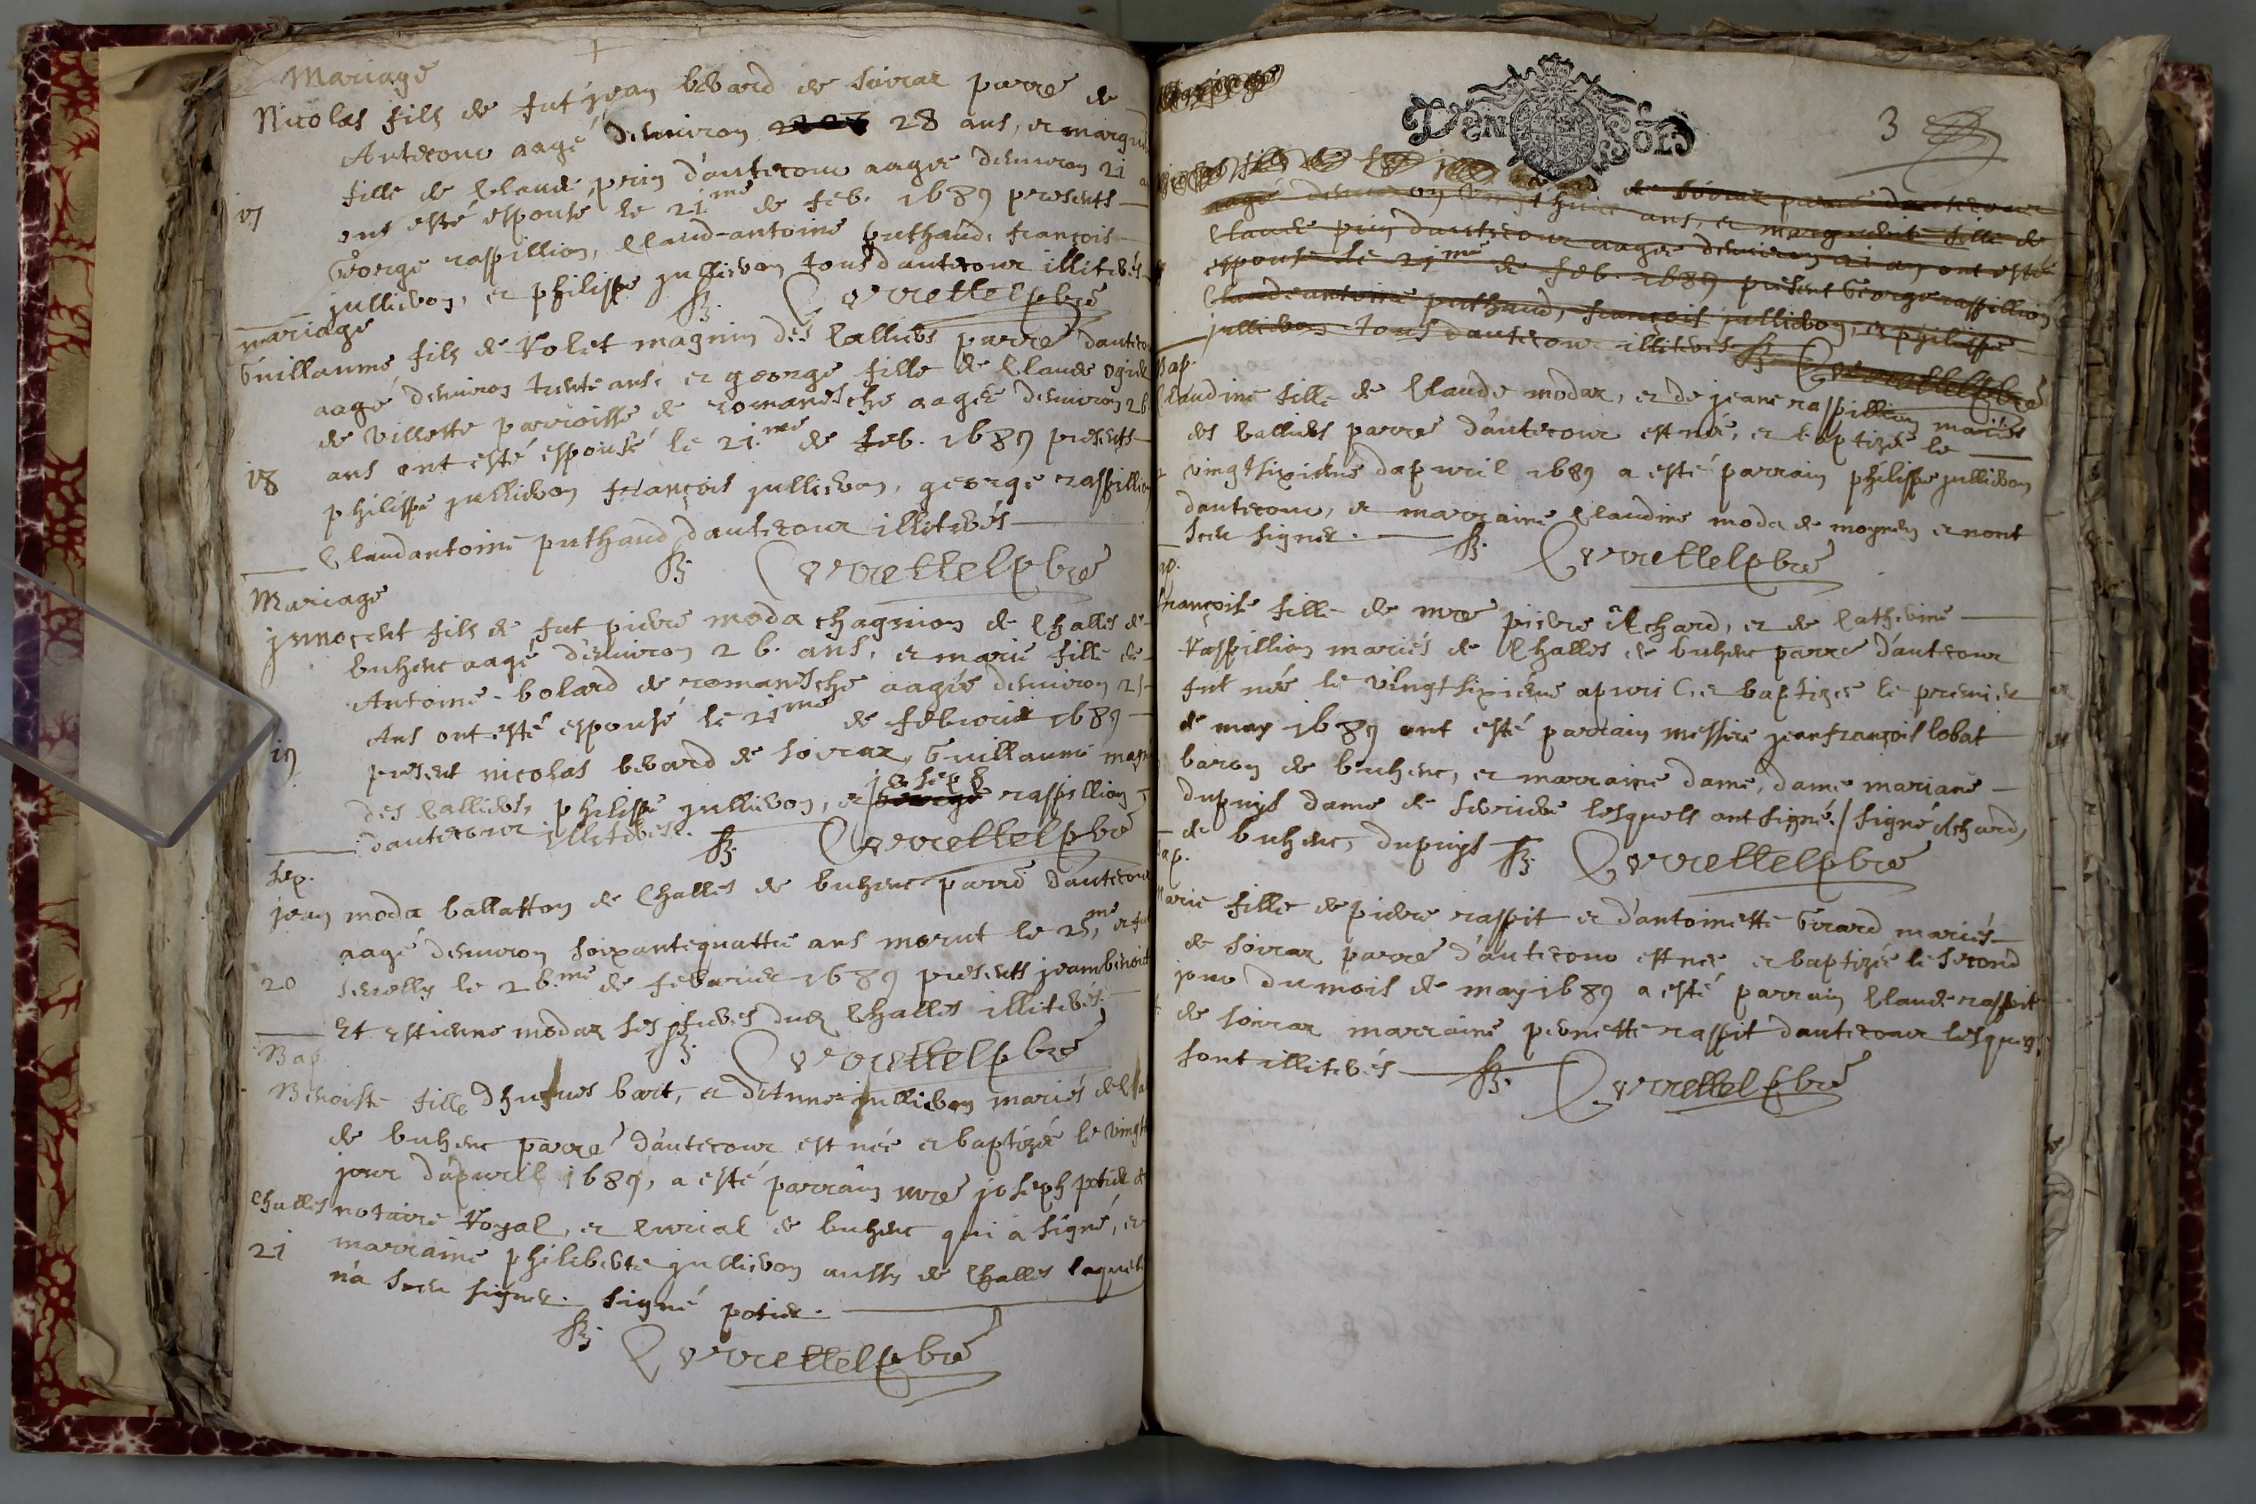 Mariage
Nicolas fils de fut jean bevard de soirar parre de
Antecour aagé denuiron 28 ans, et margue
fille de Claude prin d'autecour aagée denuiron 21
ont esté espousé le 21.me de feb. 1689 presents
17
George raspillion, Claud-antoine puthaud, françois
jullieron, et philippe jullieron tous d'autecour illiterés
mariage
Guillaume fils de Rolet magnin des Calliers parre d'auteco
aagé denuiron trente ans, et george fille de Claude ogier
de villette parroisse de romanesche aagée denuiron 26
ans ont esté espousé le 21.me de feb. 1689 presents
18
philippe jullieron françois jullieron, george raspillion
Claudantoine puthaud d'autecour illiterés
Mariage
jnnocent fils de fut pierre moda chagnion de Challes de
buhenc aagé denuiron 26. ans, et marie fille de
Antoine bolard de romanesche aagée denuiron 21
Ans ont esté espousé le 21me de febvrier 1689
19
present nicolas bevard de soirar, Guillaume magn
des Calliers, philippe jullieron, et joseph raspillion
d'autecour illiterés.
sep.
jean moda ballatton de Challes de buhenc parre d'autecour
aagé denuiron soixantequattre ans morut le 25.me et fut
20
sevelly le 26.me de febvarier 1689 presents jeambenoit
Et estienne modaz ses freres dud Challes illiterés
Bap
Benoiste fille d'hugues bort, et d'etiennie jullieron mariés de Cha
de buhenc parre d'autecour est née et baptizée le vingt
jour d'apuril 1689, a esté parrain mre joseph potier de
Challes notaire Royal, et Curial de buhenc qui à signé, et
21
marraine philiberte jullieron aussy de Challes laquelle
n'a sceu signer. signé potier.
3
VEN SOLS
aagé denuiron vingt huict ans, et marguerite fille de
Claude prin d'autecour aagée denuiron 21 an ont esté
espousé le 21me de feb. 1689 present George raspillion
Claudeantoine puthaud, françois jullieron, et philippe
jullieron tous d'autecour illiterés
bap.
Claudine fille de Claude modaz, et de jeane raspillion mariés
des Calliers parre d'autecour est née, et baptizée le
vingtsixiéme d'apuril 1689 a esté parrain philippe jullieron
d'autecour, et marraine Claudine moda de moyrieu et nont
sceu signer.
françoise fille de mre pierre Achard, et de Catherine
Raspillion mariés de Challes de buhenc parre d'autecour
fut née le vingtsixiéme apuril, et baptizée le premier
de may 1689 ont esté parrain messire jeanfrançois lobat
baron de buhenc, et marraine dame, dame mariane
dupuys dame de serriere lesquels ont signé / signé Achard,
de buhenc, dupuys
bap.
Marie fille de pierre raspit et d'antoinette Gerard mariés
de soirar parre d'autecour est née et baptizée le second
jour du mois de may 1689 a esté parrain Claude raspit
de soirar marraine pernette raspit d'autecour lesquels
sont illiterés